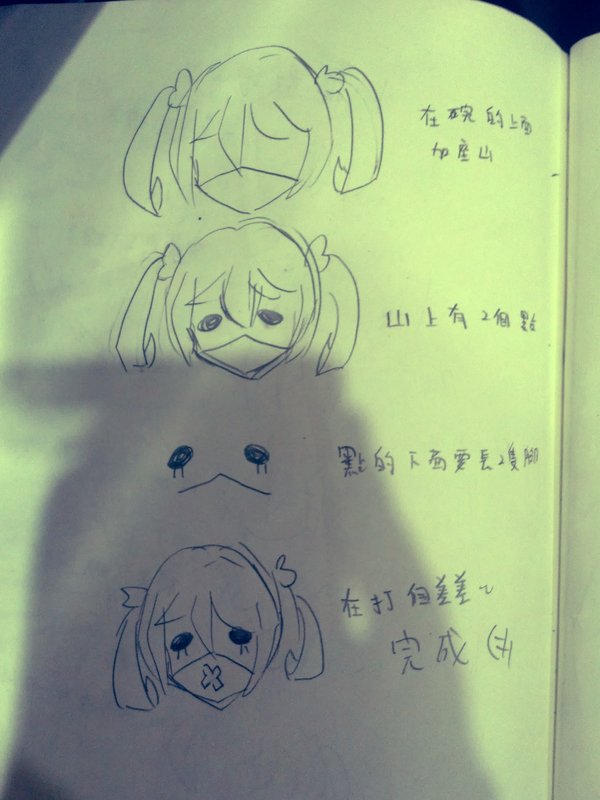 在碗的上面
加座山
山上有2個點
點的下面要長2隻腳
在打個差差~
完成